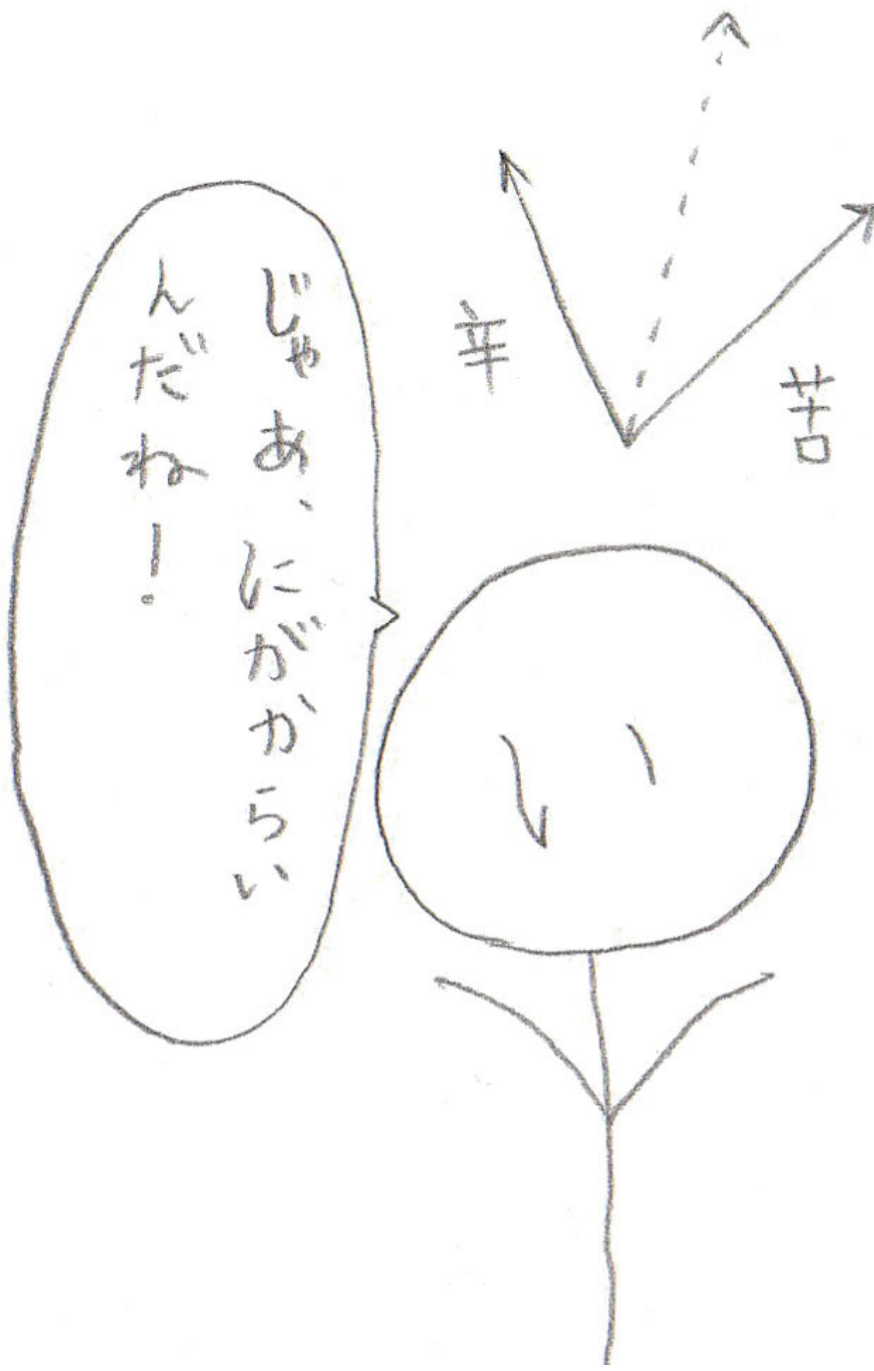 苦
辛
じゃあ、にがからい
んだね!